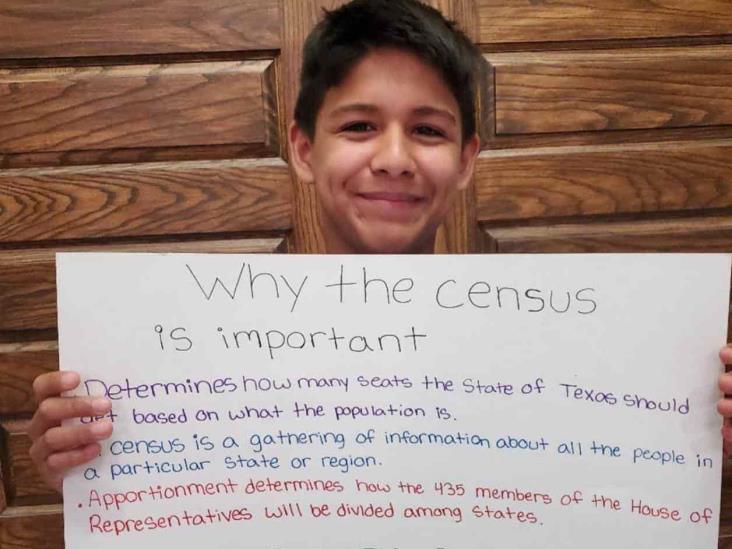 Why the census
is important
Determines how many seats the State of Texas should
get based on what the population is.
census is a gathering of information about all the people in
a particular state or region.
. Apportionment determines how the 435 members of the House of
Representatives will be divided among states.